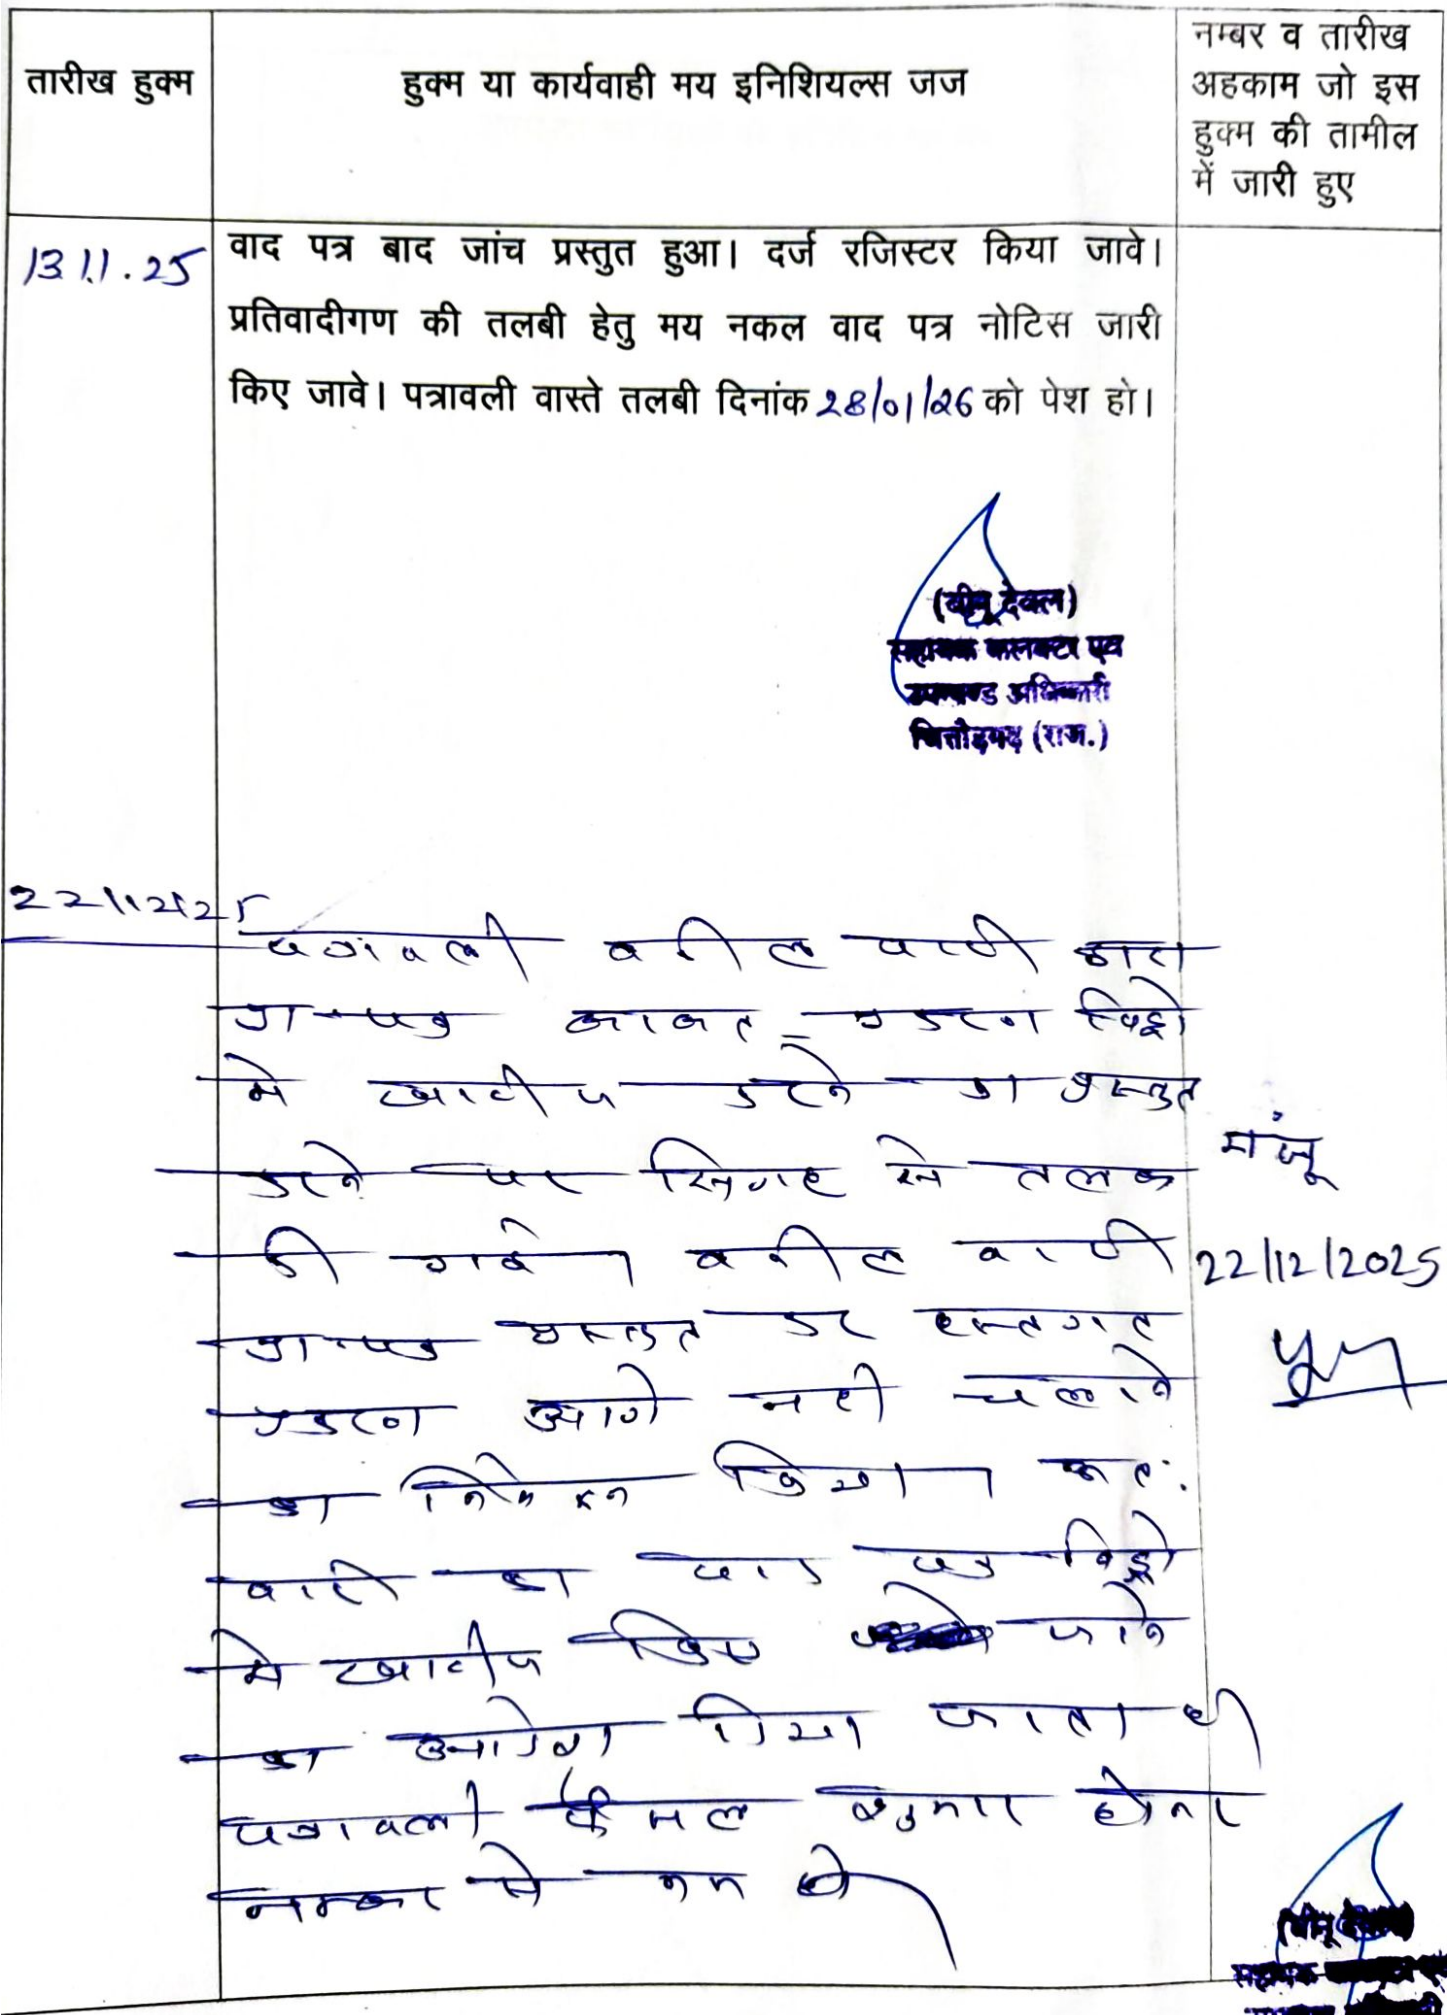 तारीख हुक्म
हुक्म या कार्यवाही मय इनिशियल्स जज
नम्बर व तारीख
अहकाम जो इस
हुक्म की तामील
में जारी हुए
13.11.25
वाद पत्र बाद जांच प्रस्तुत हुआ। दर्ज रजिस्टर किया जावे।
प्रतिवादीगण की तलबी हेतु मय नकल वाद पत्र नोटिस जारी
किए जावे। पत्रावली वास्ते तलबी दिनांक 28/01/26 को पेश हो।
(बीनू देवल)
सहायक कलक्टर एवं
उपखण्ड अधिकारी
चित्तौड़गढ़ (राज.)
22/12/25
पत्रावली वकील वादी द्वारा
प्रा-पत्र बाबत प्रकरण विड्रो
मे खारीज करने का प्रस्तुत
करने पर सिगह से तलब
की गई। वकील वादी
प्रा-पत्र प्रस्तुत कर हस्तगत
प्रकरण आगे नही चलाने
का निवेदन किया। अतः
वादी का वाद पत्र विड्रो
मे खारीज किए जाने
का आदेश दिया जाता है।
पत्रावली फैसल शुमार होकर
नम्बर से कम हो।
मंजू
22/12/2025
(बीनू देवल)
सहायक